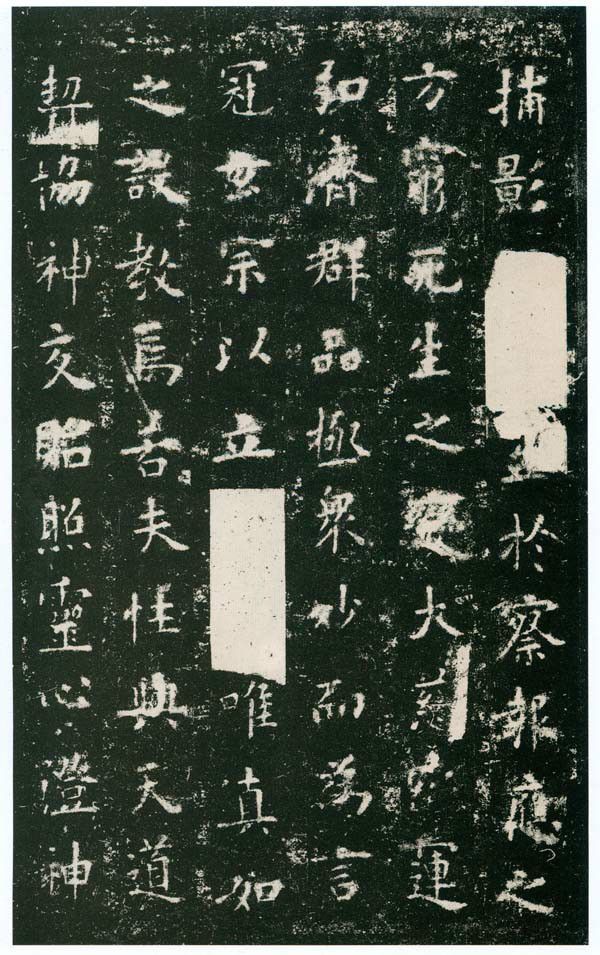 捕影至於察報應之
方窮死生之變大慈運
弘濟群品極衆妙而為言
冠玄宗以立唯真如
之設教焉若夫性與天道
契協神交貽照靈心澄神